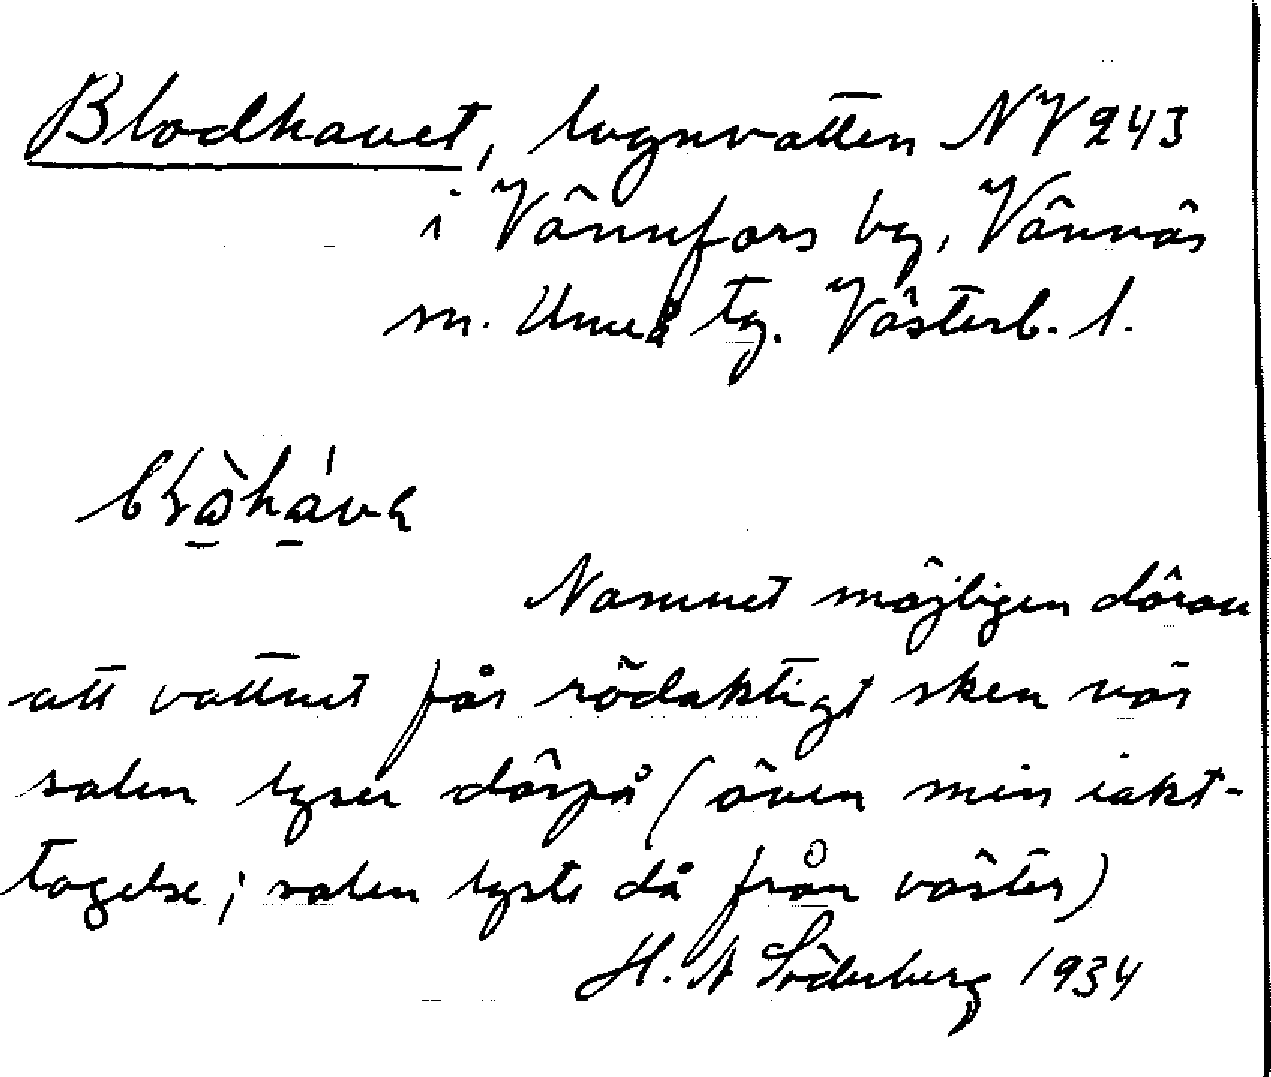 Blodhavet, lugnvatten NV 243
i Vännfors by, Vännäs
sn. Umeå tg. Västerb. l.
Namnet möjligen därav
att vattnet får rödaktigt sken när
solen lyser därpå (även min iakt-
tagelse; solen lyste då från väster)
H. N Söderberg 1934